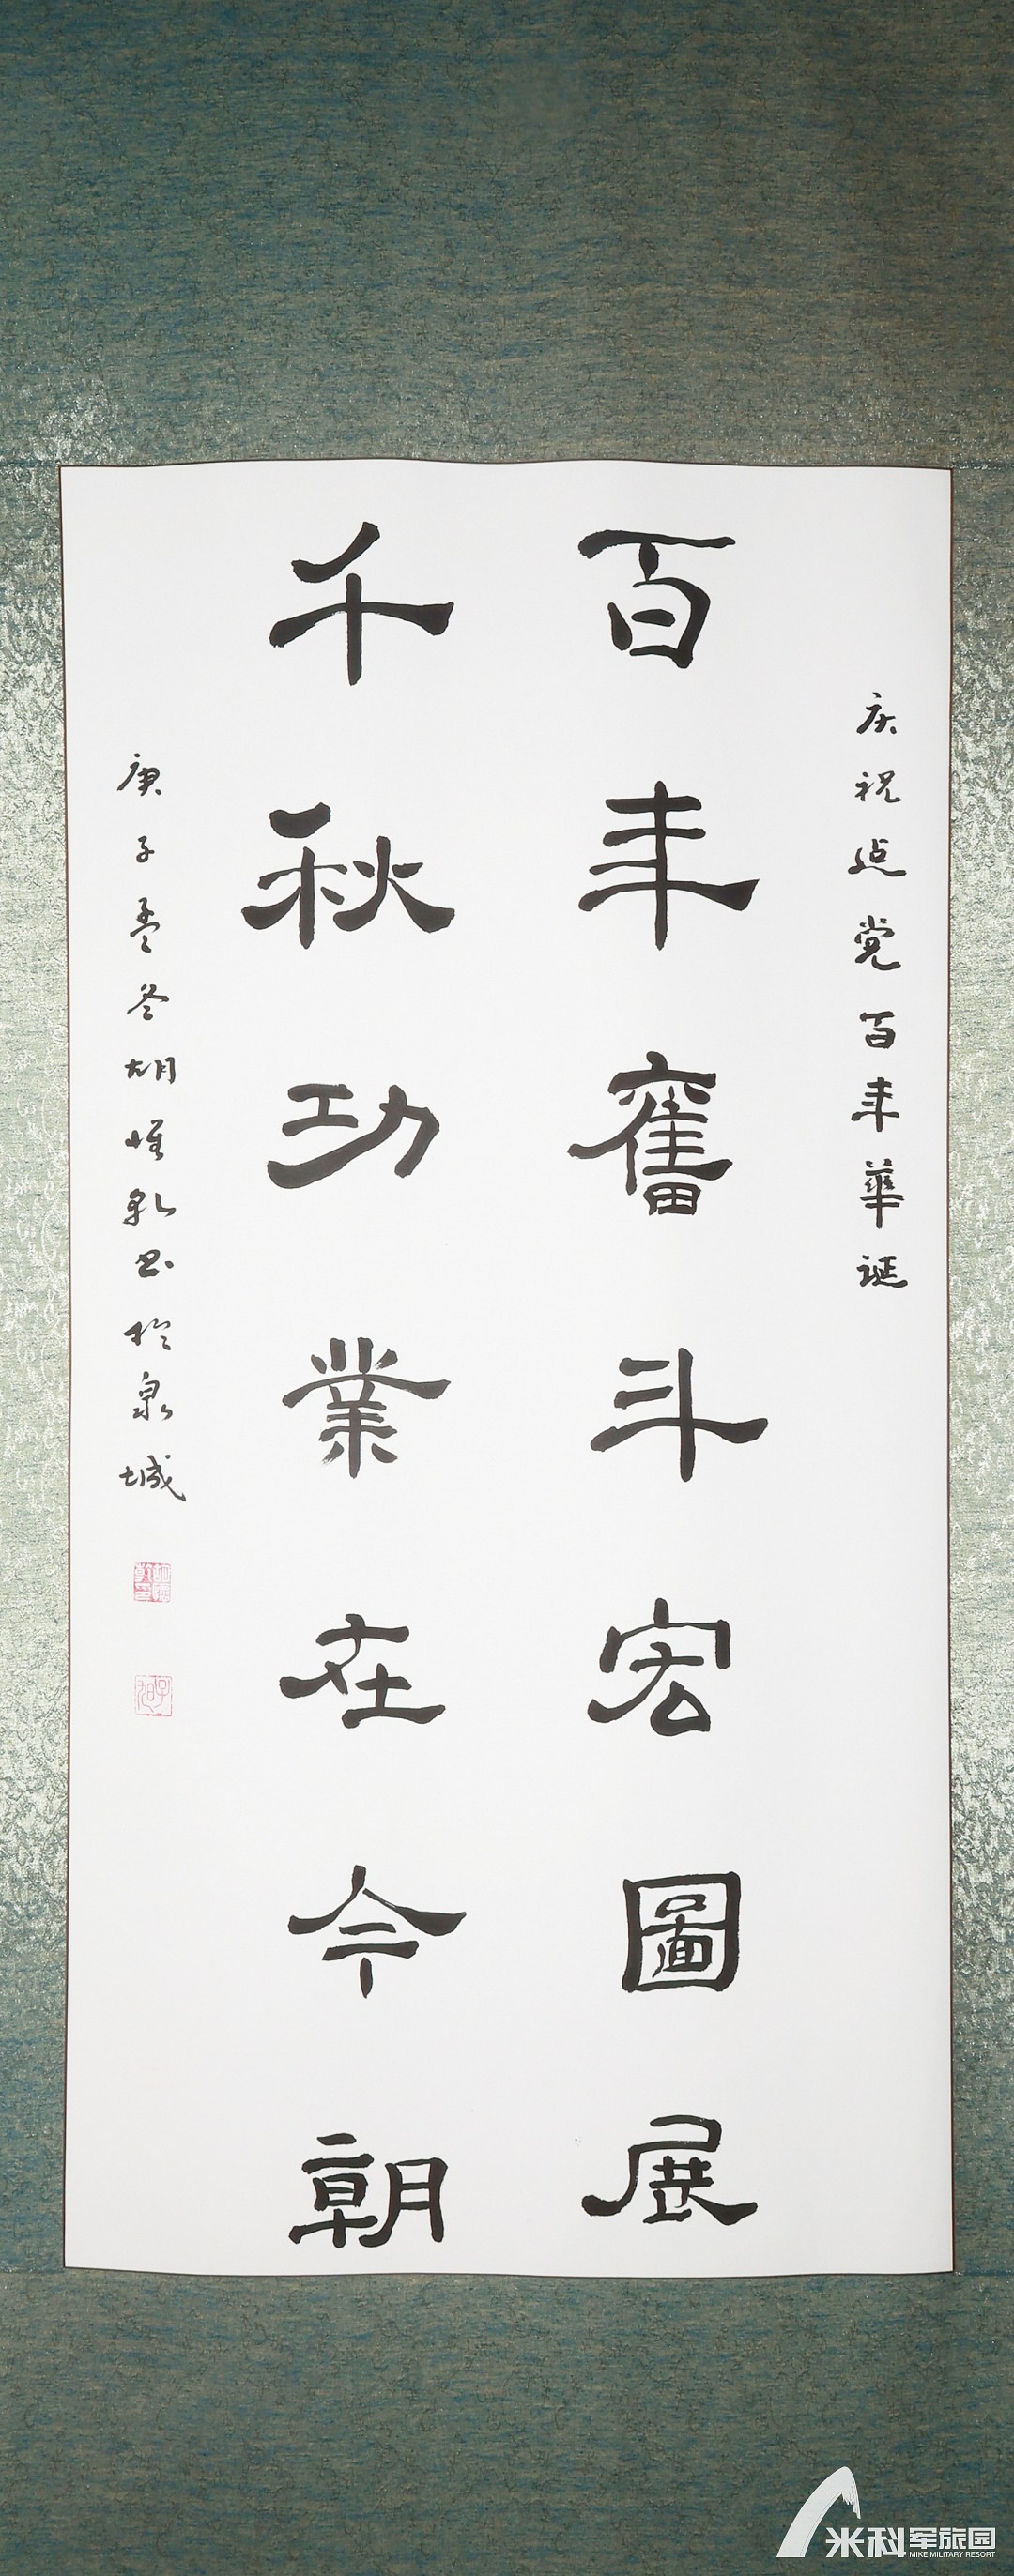 庆祝建党百年華誕
百年奮斗宏圖展
千秋功業在今朝
庚子孟冬胡惟乾书於泉城
米科军旅园
MIKE MILITARY RESORT